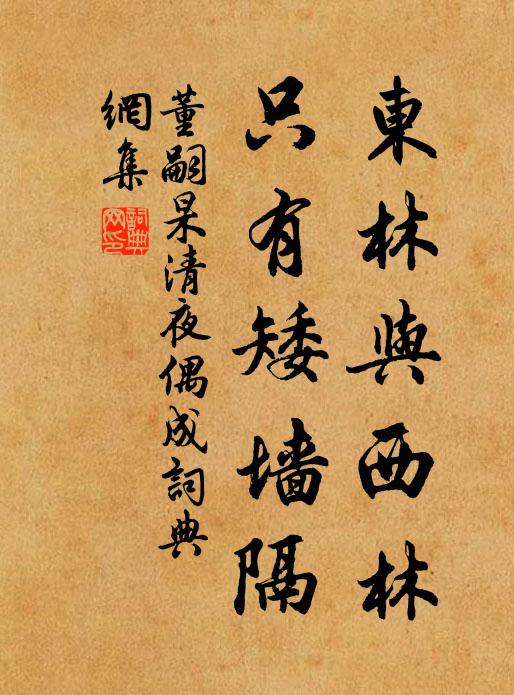 東林與西林
只有矮墙隔
董嗣杲清夜偶成詞典
網集
詞典
网印